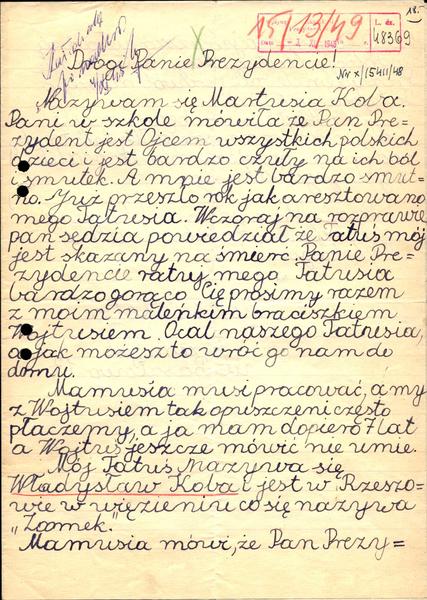 18.
15/13/49
L. dz.
48369
Drogi Panie Prezydencie!
Nr x/15411/48
Nazywam się Martusia Koba.
Pani w szkole mówiła że Pan Pre=
zydent jest Ojcem wszystkich polskich
dzieci i jest bardzo czuły na ich ból
i smutek. A mnie jest bardzo smut-
no. Już przeszło rok jak aresztowano
mego Tatusia. Wczoraj na rozprawie
pan sędzia powiedział że Tatuś mój
jest skazany na śmierć. Panie Pre=
zydencie ratuj mego Tatusia
bardzo gorąco Cię prosimy razem
z moim maleńkim braciszkiem
Wojtusiem. Ocal naszego Tatusia,
a jak możesz to wróć go nam do
domu.
Mamusia musi pracować, a my
z Wojtusiem tak opuszczeni często
płaczemy, a ja mam dopiero 7 lat
a Wojtuś jeszcze mówić nie umie.
Mój Tatuś nazywa się
Władysław Koba i jest w Rzeszo=
wie w więzieniu co się nazywa
„Zamek.
Mamusia mówi, że Pan Prezy=